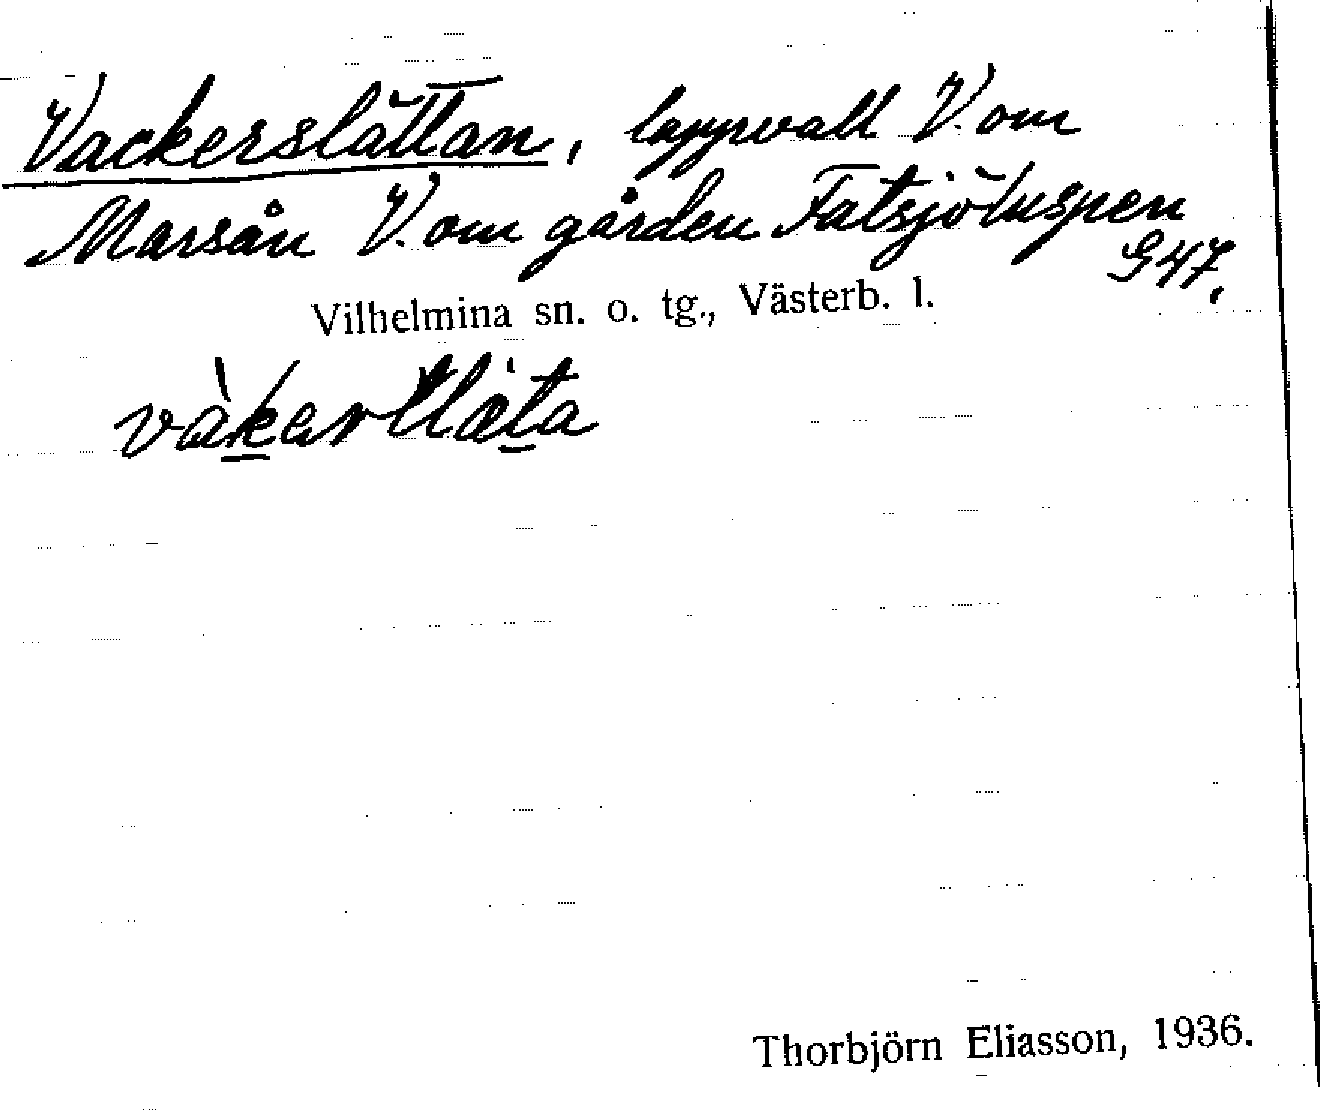 Vackerslåttan, lappvall V. om
Marsån V. om gården Fatsjöluspen
G47.
Vilhelmina sn. o. tg., Västerb. l.
Thorbjörn Eliasson, 1936.